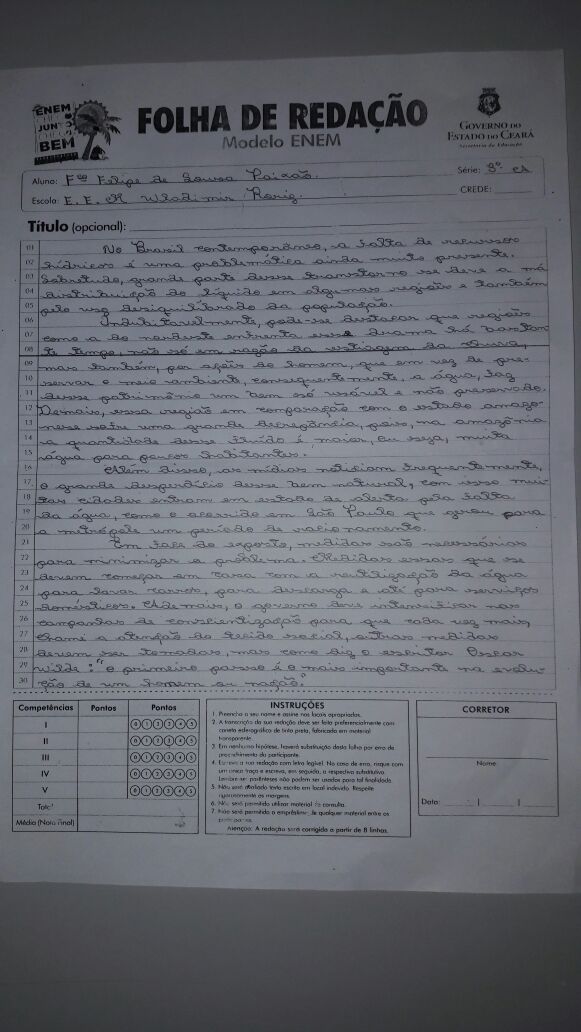 ENEM
CHEGO
JUNTO
CHEGO
BEM
FOLHA DE REDAÇÃO
Modelo ENEM
GOVERNO DO
ESTADO DO CEARÁ
Secretaria da Educação
Aluno: Fco Felipe de Sousa Paixão. Série: 3º
Escola: E. E. M Wladimir Roriz CREDE:
Título (opcional):
01 No Brasil contemporâneo, a falta de recursos
02 hídricos é uma problemática ainda muito presente.
03 Sobretudo, grande parte desse transtorno se deve a má
04 distribuição do líquido em algumas regiões e também
05 pelo uso desiquilibrado da população.
06 Indubitavelmente, pode-se destacar que regiões
07 como a do nordeste enfrenta esse drama há bastan
08 te tempo, não só em razão da estiagem da chuva,
09 mas também, por ações do homem, que em vez de pre-
10 servar o meio ambiente, consequentemente, a água, faz
11 desse patrimônio um bem só usável e não preservado.
12 Demais, essa região em comparação com o estado amazo-
13 nense sofre uma grande discrepância, pois, na amazônia
14 a quantidade desse fluído é maior, ou seja, muita
15 água para poucos habitantes.
16 Além disso, as mídias noticiam frequentemente,
17 o grande desperdício desse bem natural, com isso mui-
18 tas cidades entram em estado de alerta pela falta
19 da água, como o ocorrido em São Paulo que gerou para
20 a metrópole um período de racionamento.
21 Em face do exposto, medidas são necessárias
22 para minimizar a problema. Medidas essas que se
23 devem começar em casa com a reutilização da água
24 para lavar carros, para descarga e até para serviços
25 domésticos. Ademais, o governo deve intensificar nas
26 campanhas de conscientização para que cada vez mais,
27 chame a atenção do tecido social, outras medidas
28 devem ser tomadas, mas como diz o escritor Oscar
29 wilde: "o primeiro passo é o mais importante na evolu-
30 ção de um homem ou nação."
Competências Pontos Pontos
I 0 1 2 3 4 5
II 0 1 2 3 4 5
III 0 1 2 3 4 5
IV 0 1 2 3 4 5
V 0 1 2 3 4 5
Total
Média (Nota Final)
INSTRUÇÕES
1. Preencha o seu nome e assine nos locais apropriados.
2. A transcrição da sua redação deve ser feita preferencialmente com
caneta esferográfica de tinta preta, fabricada em material
transparente.
3. Em nenhuma hipótese, haverá substituição desta folha por erro de
preenchimento do participante.
4. Escreva a sua redação com letra legível. No caso de erro, risque com
um único traço e escreva, em seguida, o respectivo substitutivo.
Lembre-se: parênteses não podem ser usados para tal finalidade.
5. Não será avaliado texto escrito em local indevido. Respeite
rigorosamente as margens.
6. Não será permitido utilizar material de consulta.
7. Não será permitido o empréstimo de qualquer material entre os
participantes.
Atenção: A redação será corrigida a partir de 8 linhas.
CORRETOR
Nome
Data: / /